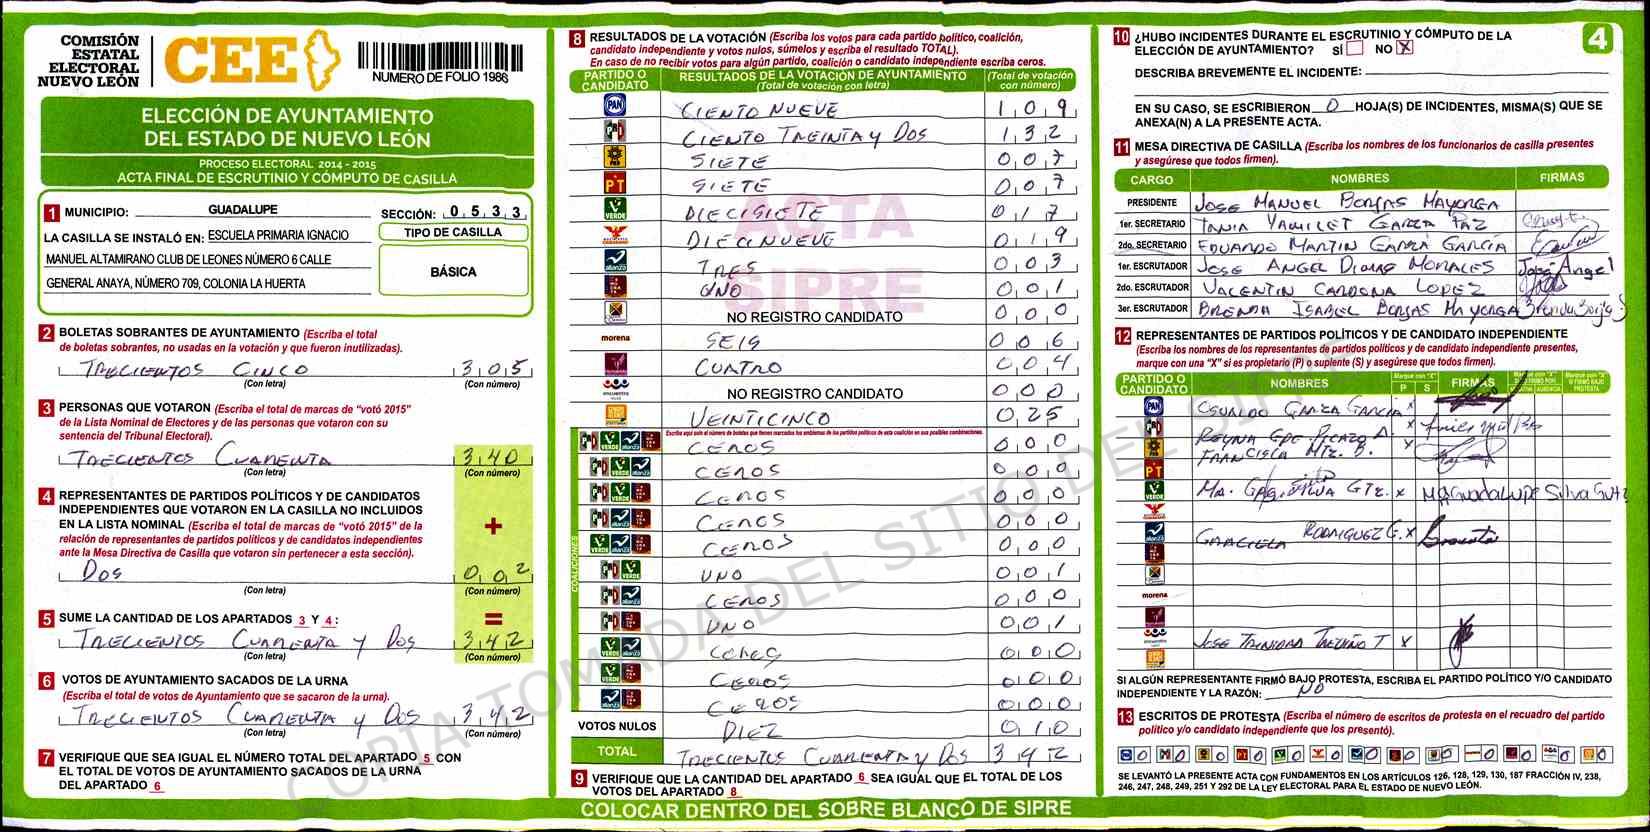 COMISIÓN
ESTATAL
ELECTORAL
NUEVO LEÓN
CEE
NUMERO DE FOLIO 1986
ELECCIÓN DE AYUNTAMIENTO
DEL ESTADO DE NUEVO LEÓN
PROCESO ELECTORAL 2014 - 2015
ACTA FINAL DE ESCRUTINIO Y CÓMPUTO DE CASILLA
1 MUNICIPIO: GUADALUPE SECCIÓN: 0 5 3 3
LA CASILLA SE INSTALÓ EN: ESCUELA PRIMARIA IGNACIO
MANUEL ALTAMIRANO CLUB DE LEONES NÚMERO 6 CALLE
GENERAL ANAYA, NÚMERO 709, COLONIA LA HUERTA
TIPO DE CASILLA
BÁSICA
2 BOLETAS SOBRANTES DE AYUNTAMIENTO (Escriba el total
de boletas sobrantes, no usadas en la votación y que fueron inutilizadas).
TRECIENTOS CINCO 3 0 5
(Con letra) (Con número)
3 PERSONAS QUE VOTARON (Escriba el total de marcas de "votó 2015"
de la Lista Nominal de Electores y de las personas que votaron con su
sentencia del Tribunal Electoral).
TRECIENTOS CUARENTA 3 4 0
(Con letra) (Con número)
4 REPRESENTANTES DE PARTIDOS POLÍTICOS Y DE CANDIDATOS
INDEPENDIENTES QUE VOTARON EN LA CASILLA NO INCLUIDOS
EN LA LISTA NOMINAL (Escriba el total de marcas de "votó 2015" de la
relación de representantes de partidos políticos y de candidatos independientes
ante la Mesa Directiva de Casilla que votaron sin pertenecer a esta sección).
+
DOS 0 0 2
(Con letra) (Con número)
5 SUME LA CANTIDAD DE LOS APARTADOS 3 Y 4 : =
TRECIENTOS CUARENTA Y DOS 3 4 2
(Con letra) (Con número)
6 VOTOS DE AYUNTAMIENTO SACADOS DE LA URNA
(Escriba el total de votos de Ayuntamiento que se sacaron de la urna).
TRECIENTOS CUARENTA Y DOS 3 4 2
(Con letra) (Con número)
7 VERIFIQUE QUE SEA IGUAL EL NÚMERO TOTAL DEL APARTADO 5 CON
EL TOTAL DE VOTOS DE AYUNTAMIENTO SACADOS DE LA URNA
DEL APARTADO 6
8 RESULTADOS DE LA VOTACIÓN (Escriba los votos para cada partido político, coalición,
candidato independiente y votos nulos, súmelos y escriba el resultado TOTAL).
En caso de no recibir votos para algún partido, coalición o candidato independiente escriba ceros.
PARTIDO O CANDIDATO RESULTADOS DE LA VOTACIÓN DE AYUNTAMIENTO (Total de votación con letra) (Total de votación con número)
PAN CIENTO NUEVE 1 0 9
CIENTO TREINTA Y DOS 1 3 2
PRD SIETE 0 0 7
PT SIETE 0 0 7
VERDE DIECISIETE 0 1 7
DIECINUEVE 0 1 9
alianza TRES 0 0 3
UNO 0 0 1
NO REGISTRO CANDIDATO 0 0 0
morena SEIS 0 0 6
CUATRO 0 0 4
NO REGISTRO CANDIDATO 0 0 0
VEINTICINCO 0 2 5
COALICIONES
Escriba aquí solo el número de boletas que tienen marcados los emblemas de los partidos políticos de esta coalición en sus posibles combinaciones.
CEROS 0 0 0
CEROS 0 0 0
CEROS 0 0 0
CEROS 0 0 0
CEROS 0 0 0
UNO 0 0 1
CEROS 0 0 0
UNO 0 0 1
CEROS 0 0 0
CEROS 0 0 0
CEROS 0 0 0
VOTOS NULOS DIEZ 0 1 0
TOTAL TRECIENTOS CUARENTA Y DOS 3 4 2
9 VERIFIQUE QUE LA CANTIDAD DEL APARTADO 6 SEA IGUAL QUE EL TOTAL DE LOS
VOTOS DEL APARTADO 8
ACTA
SIPRE
COPIA TOMADA DEL SITIO DEL SIPRE
COLOCAR DENTRO DEL SOBRE BLANCO DE SIPRE
4
10 ¿HUBO INCIDENTES DURANTE EL ESCRUTINIO Y CÓMPUTO DE LA
ELECCIÓN DE AYUNTAMIENTO? SÍ NO X
DESCRIBA BREVEMENTE EL INCIDENTE:
EN SU CASO, SE ESCRIBIERON 0 HOJA(S) DE INCIDENTES, MISMA(S) QUE SE
ANEXA(N) A LA PRESENTE ACTA.
11 MESA DIRECTIVA DE CASILLA (Escriba los nombres de los funcionarios de casilla presentes
y asegúrese que todos firmen).
CARGO NOMBRES FIRMAS
PRESIDENTE JOSE MANUEL BORJAS MAYORGA
1er. SECRETARIO TANIA YAMILET GARZA PAZ
2do. SECRETARIO EDUARDO MARTIN GARCÍA
1er. ESCRUTADOR JOSE ANGEL MORALES José Angel
2do. ESCRUTADOR VALENTIN CARDONA LOPEZ
3er. ESCRUTADOR BRENDA ISABEL BORJAS MAYORGA Brenda Borjas
12 REPRESENTANTES DE PARTIDOS POLÍTICOS Y DE CANDIDATO INDEPENDIENTE
(Escriba los nombres de los representantes de partidos políticos y de candidato independiente presentes,
marque con una "X" si es propietario (P) o suplente (S) y asegúrese que todos firmen).
PARTIDO O CANDIDATO NOMBRES Marque con "X" P S FIRMAS
PAN OSVALDO GARZA GARCIA X
REYNA GPE. A.
PRD FRANCISCA MTZ. X
PT
VERDE MA. SILVA GTZ. X Ma Guadalupe Silva Gutz
alianza GRACIELA RODRIGUEZ G. X
morena
JOSE TRINIDAD TREVIÑO T X
SI ALGÚN REPRESENTANTE FIRMÓ BAJO PROTESTA, ESCRIBA EL PARTIDO POLÍTICO Y/O CANDIDATO
INDEPENDIENTE Y LA RAZÓN: NO
13 ESCRITOS DE PROTESTA (Escriba el número de escritos de protesta en el recuadro del partido
político y/o candidato independiente que los presentó).
0 0 0 0 0 0 0 0 0 0 0 0 0
SE LEVANTÓ LA PRESENTE ACTA CON FUNDAMENTOS EN LOS ARTÍCULOS 126, 128, 129, 130, 187 FRACCIÓN IV, 238,
246, 247, 248, 249, 251 Y 292 DE LA LEY ELECTORAL PARA EL ESTADO DE NUEVO LEÓN.